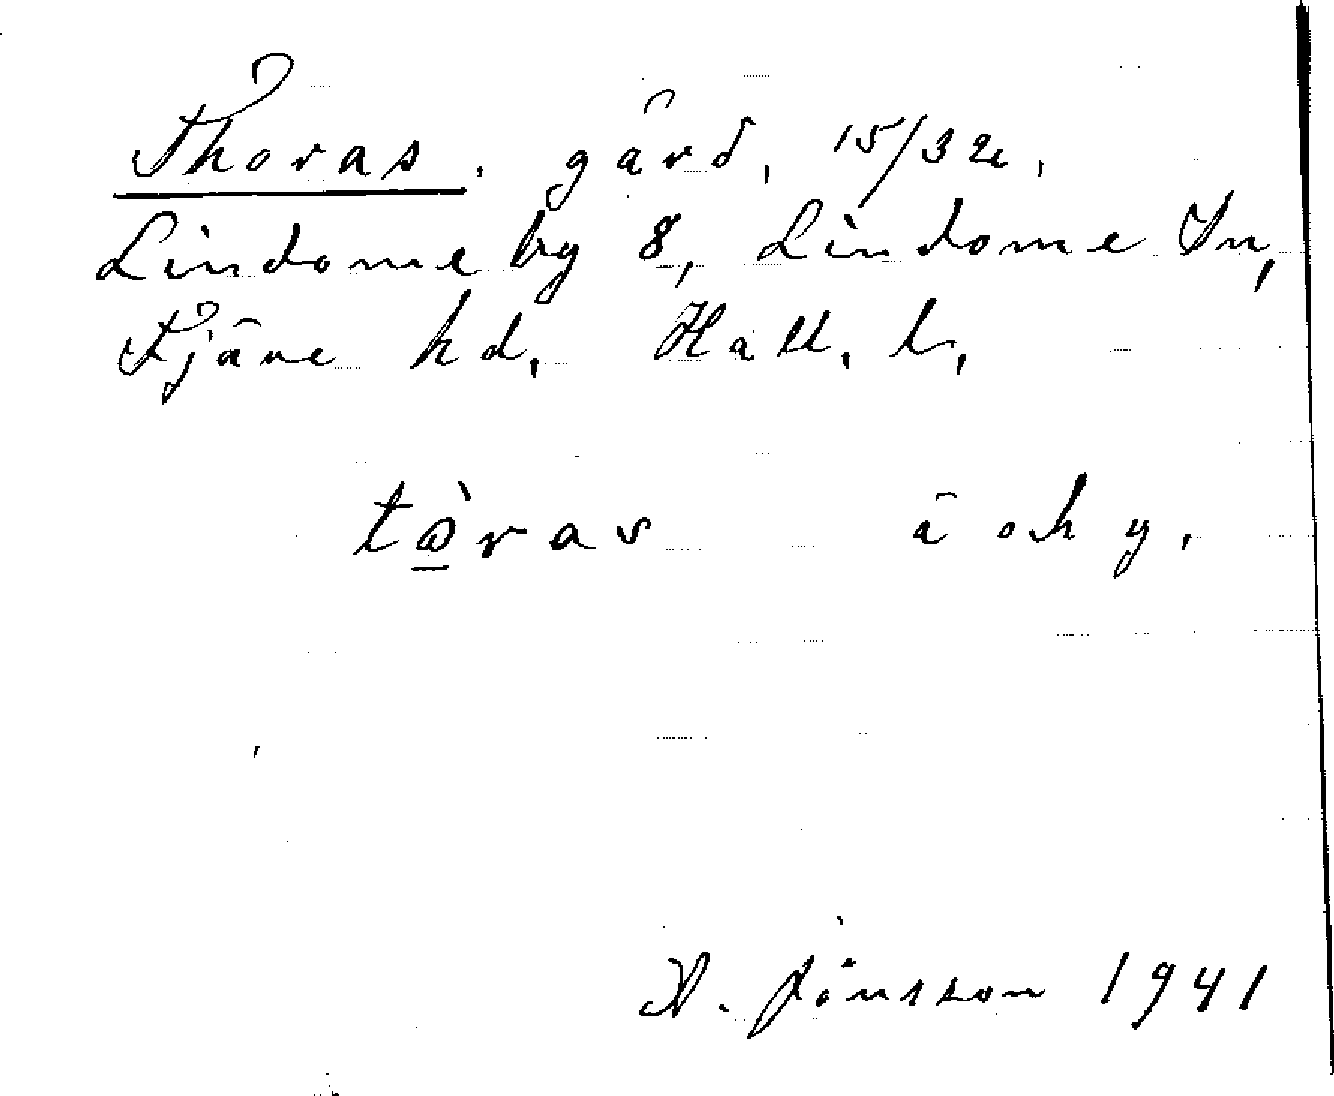 Thoras. gård, 15/32u,
Lindome by 8, Lindome sn,
Fjäre hd, Hall. l.,
tɷ̀ras ä och y,
N. Jönsson 1941